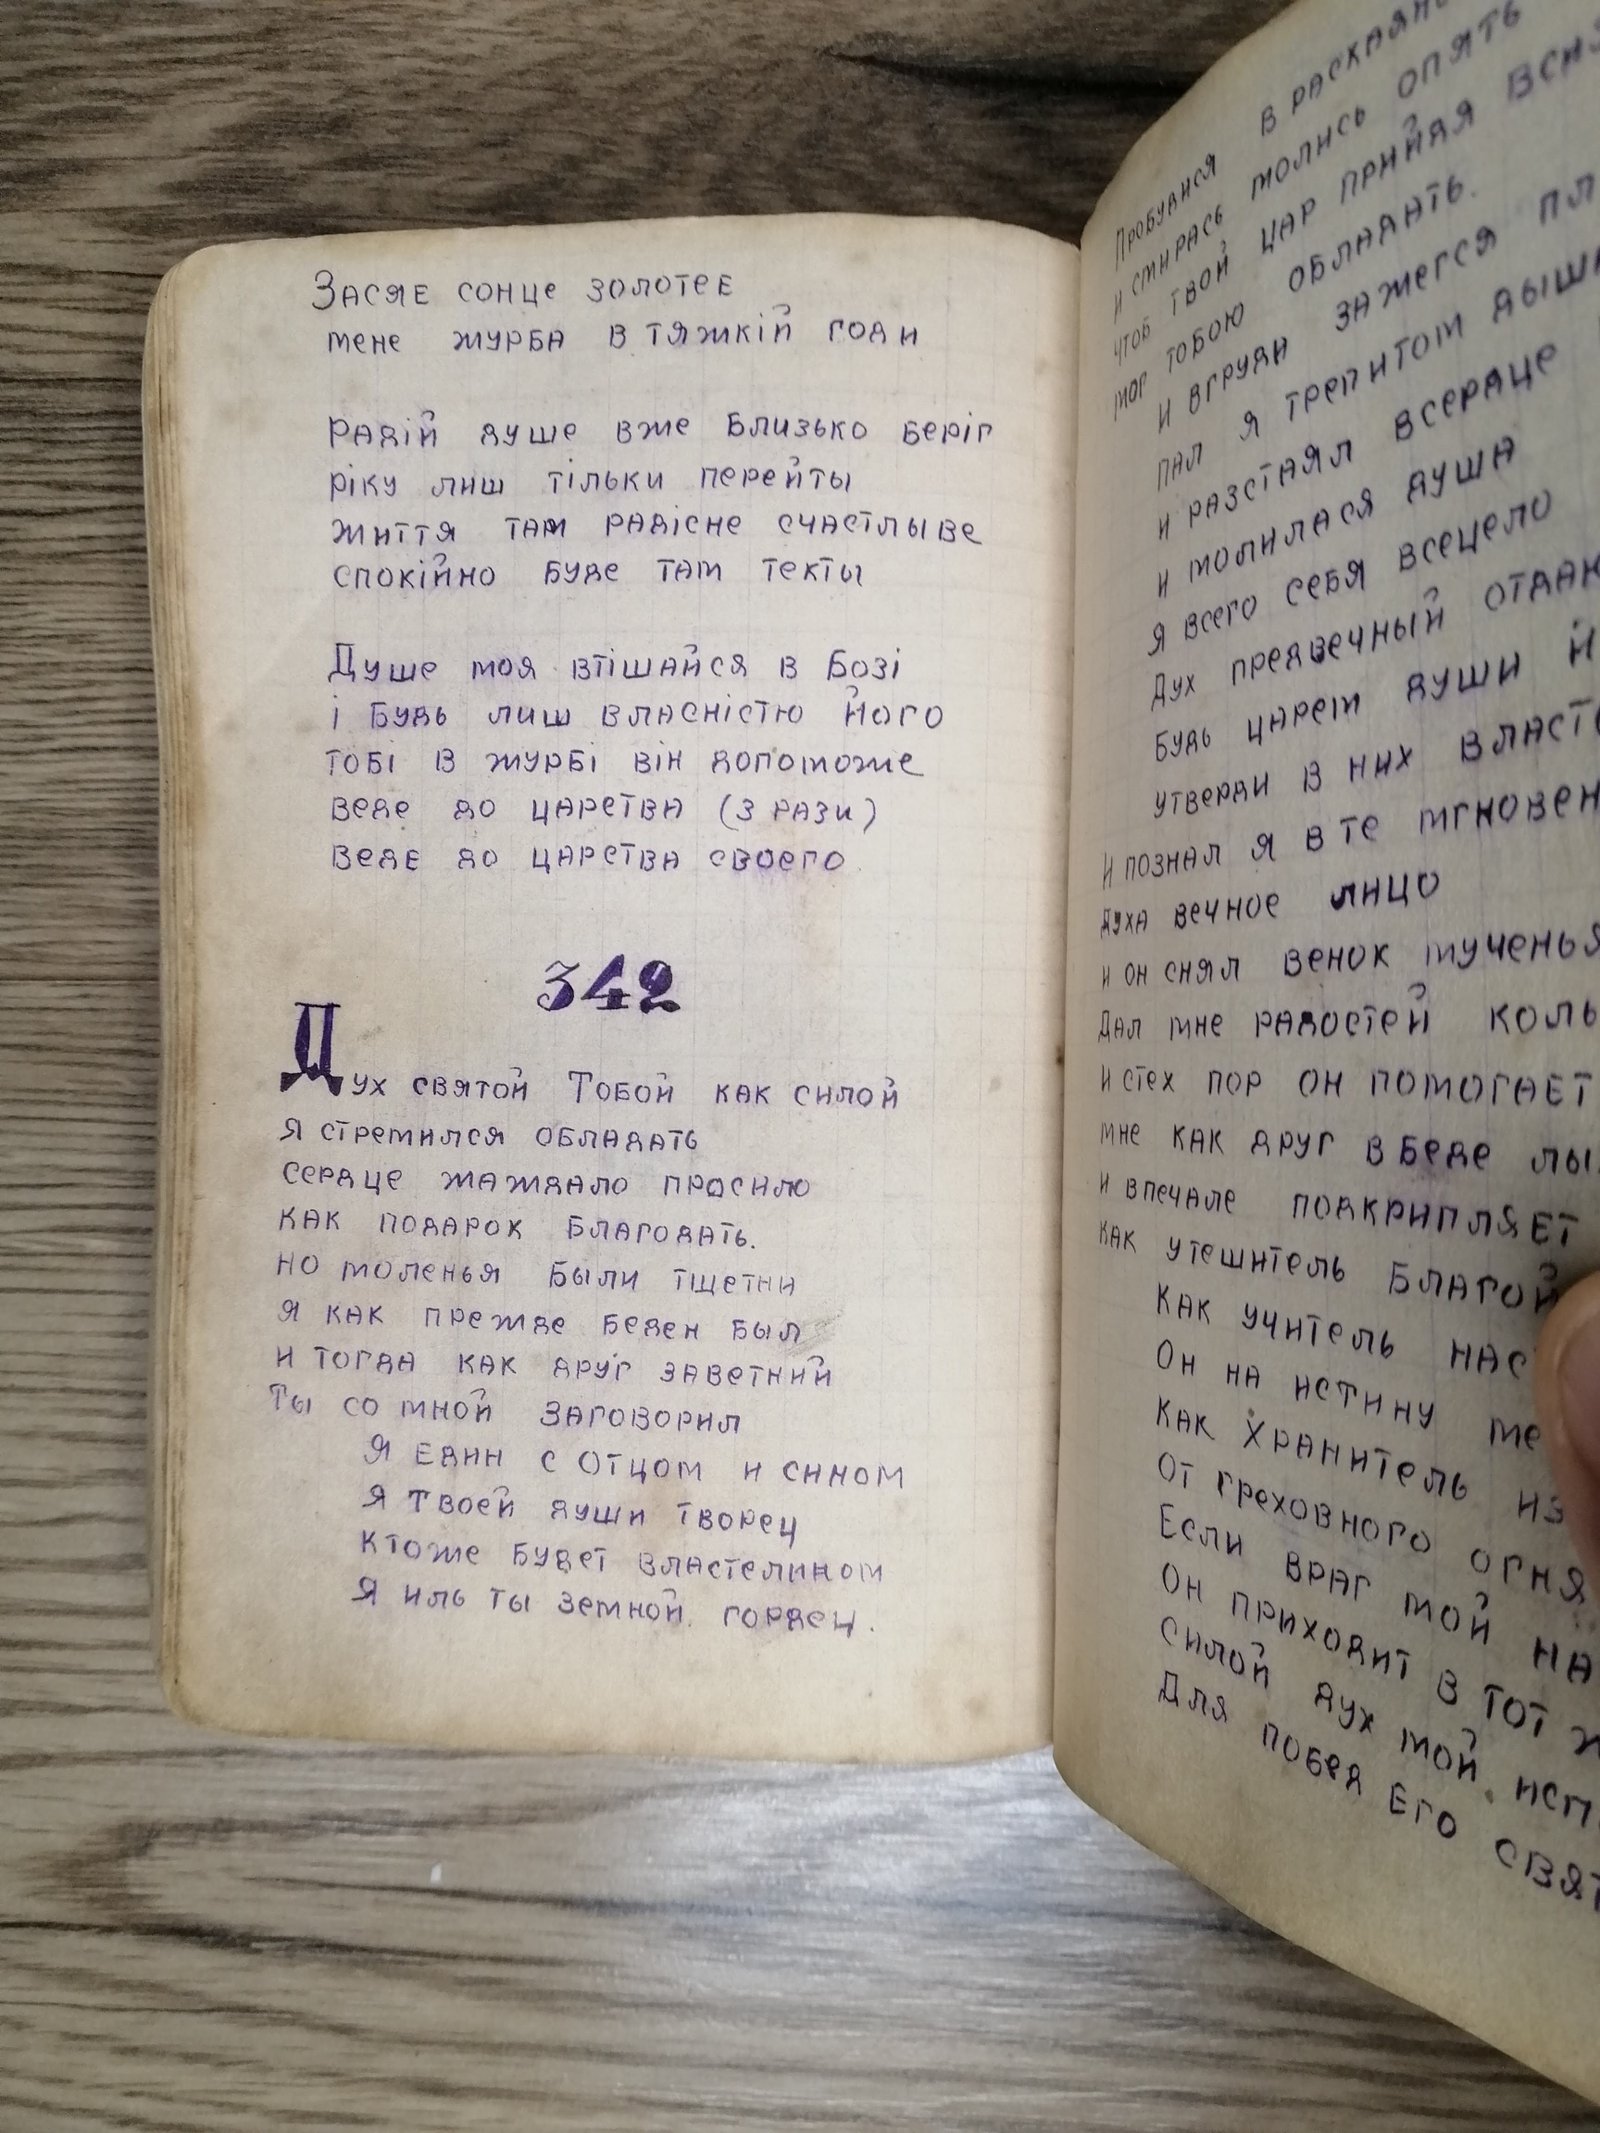 Засяе сонце золотее
мене журба в тяжкій годи
Радій душе вже близько беріг
ріку лиш тільки перейты
життя там радісне счастлыве
спокійно буде там текты
Душе моя втішайся в Бозі
і будь лиш власністю Його
тобі в журбі він допоможе
веде до царства (3 рази)
веде до царства своего
342
Дух святой Тобой как силой
я стремился обладать
сердце жаждало просило
как подарок благодать.
но моленья были тщетни
я как прежде беден был
и тогда как друг заветний
Ты со мной заговорил
Я един с Отцом и сином
Я твоей души творец
ктоже будет властелином
Я иль ты земной гордец.
Пробудися в
и смирась молись опять
чтоб твой цар прийдя
мог тобою обладать.
и вгруди зажегся
пал я трепитом
и разстаял всердце
и молилася душа
я всего себя всецело
Дух предвечный
будь царем души
утверди в них
и познал я в те
духа вечное лицо
и он снял венок мученья
Дал мне радостей
и стех пор он помогает
мне как друг в беде
и впечале подкрипляет
как утешитель благой
Как учитель
Он на истину
Как Хранитель
От греховного огня
Если враг мой
Он приходит в тот
силой дух мой
Для побед Его